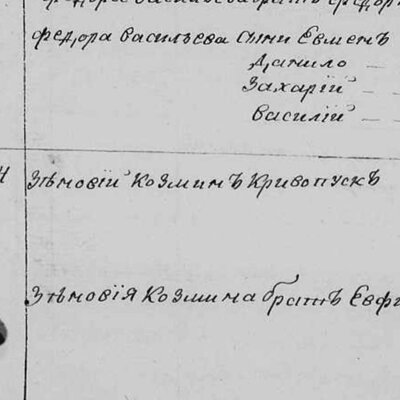 Федора Васильева сыни Евменъ
Данило
Захарій
Василій
Зѣновій Козминъ Кривопускъ
Зѣновія Козмина братъ